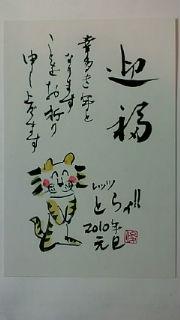 迎福
幸多き年と
なります
ことをお祈り
申し上げます
レッツ
とらい!!
2010年
元旦